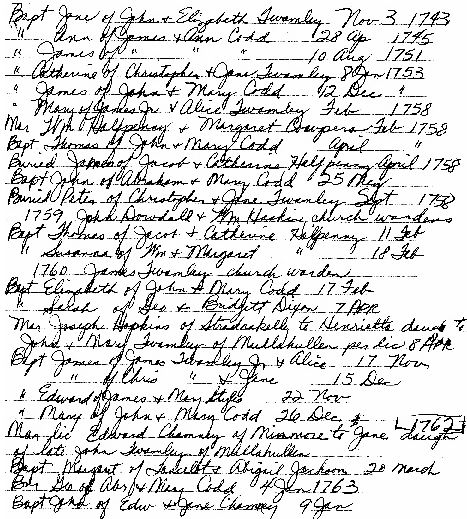 Bapt Jane of John & Elizabeth Twamley Nov 3 1743
" Ann of James & Ann Codd 28 Ap 1745
" James of " " " 10 Aug 1751
" Catherine of Christopher & Jane Twamley 8 Jan 1753
" James of John & Mary Codd 12 Dec "
" Mary of James Jr & Alice Twamley Feb 1758
Mar Wm Halfpenny & Margaret Cowpera Feb 1758
Bapt Thomas of John & Mary Codd April "
Buried James of Jacob & Catherine Halfpenny April 1758
Bapt John of Abraham & Mary Codd 25 May
Buried Peter of Christopher & Jane Twamley Sept 1758
1759 John Dowdall & Wm Hawkins church wardens
Bapt Thomas of Jacob & Catherine Halfpenny 11 Feb
" Susanna of Wm & Margaret " 18 Feb
1760 James Twamley church warden
Bapt Elizabeth of John & Mary Codd 17 Feb
" Sarah of Geo & Bridgett Dixon 7 Apr
Mar Joseph Hopkins of Stradakelly to Henrietta daug to
John & Mary Twamley of Mullahullen per lic 8 Apr
Bapt James of James Twamley Jr & Alice 17 Nov
" " of Chris " & Jane 15 Dec
" Edward of James & Mary Styles 22 Nov
" Mary of John & Mary Codd 26 Dec
1762
Mar lic Edward Chamney of Minmore to Jane daugh
of late John Twamley of Mullahullen
Bapt Margart of Lancelot & Abigil Jackson 28 March
Geo of Abr & Mary Codd 4 Jan 1763
Bapt John of Edw & Jane Chamney 9 Jan